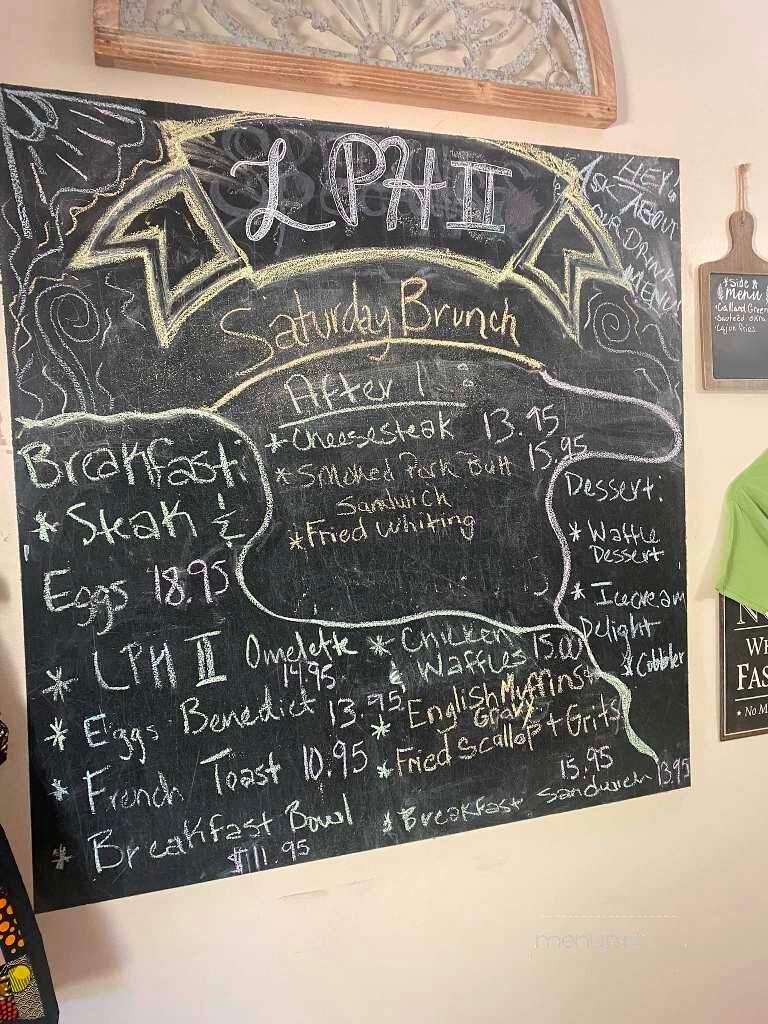 LPH II
HEY,
ASK ABOUT
OUR DRINK
MENU!
Saturday Brunch
After 1:
* Cheesesteak 13.95
* Smoked Pork Butt 15.95
Sandwich
* Fried Whiting
Breakfast:
* Steak &
Eggs 18.95
* LPH II Omelette
14.95
* Eggs Benedict 13.95
* French Toast 10.95
* Breakfast Bowl
$11.95
* Chicken
& Waffles 15.00
* English Muffins +
Gravy
* Fried Scallop + Grits
15.95
* Breakfast Sandwich 13.95
Dessert:
* Waffle
Dessert
* Icecream
Delight
* Cobbler
Side
Menu
Collard Green
Sauteed okra
Cajun Fries
WH
FAS
• No M
menu